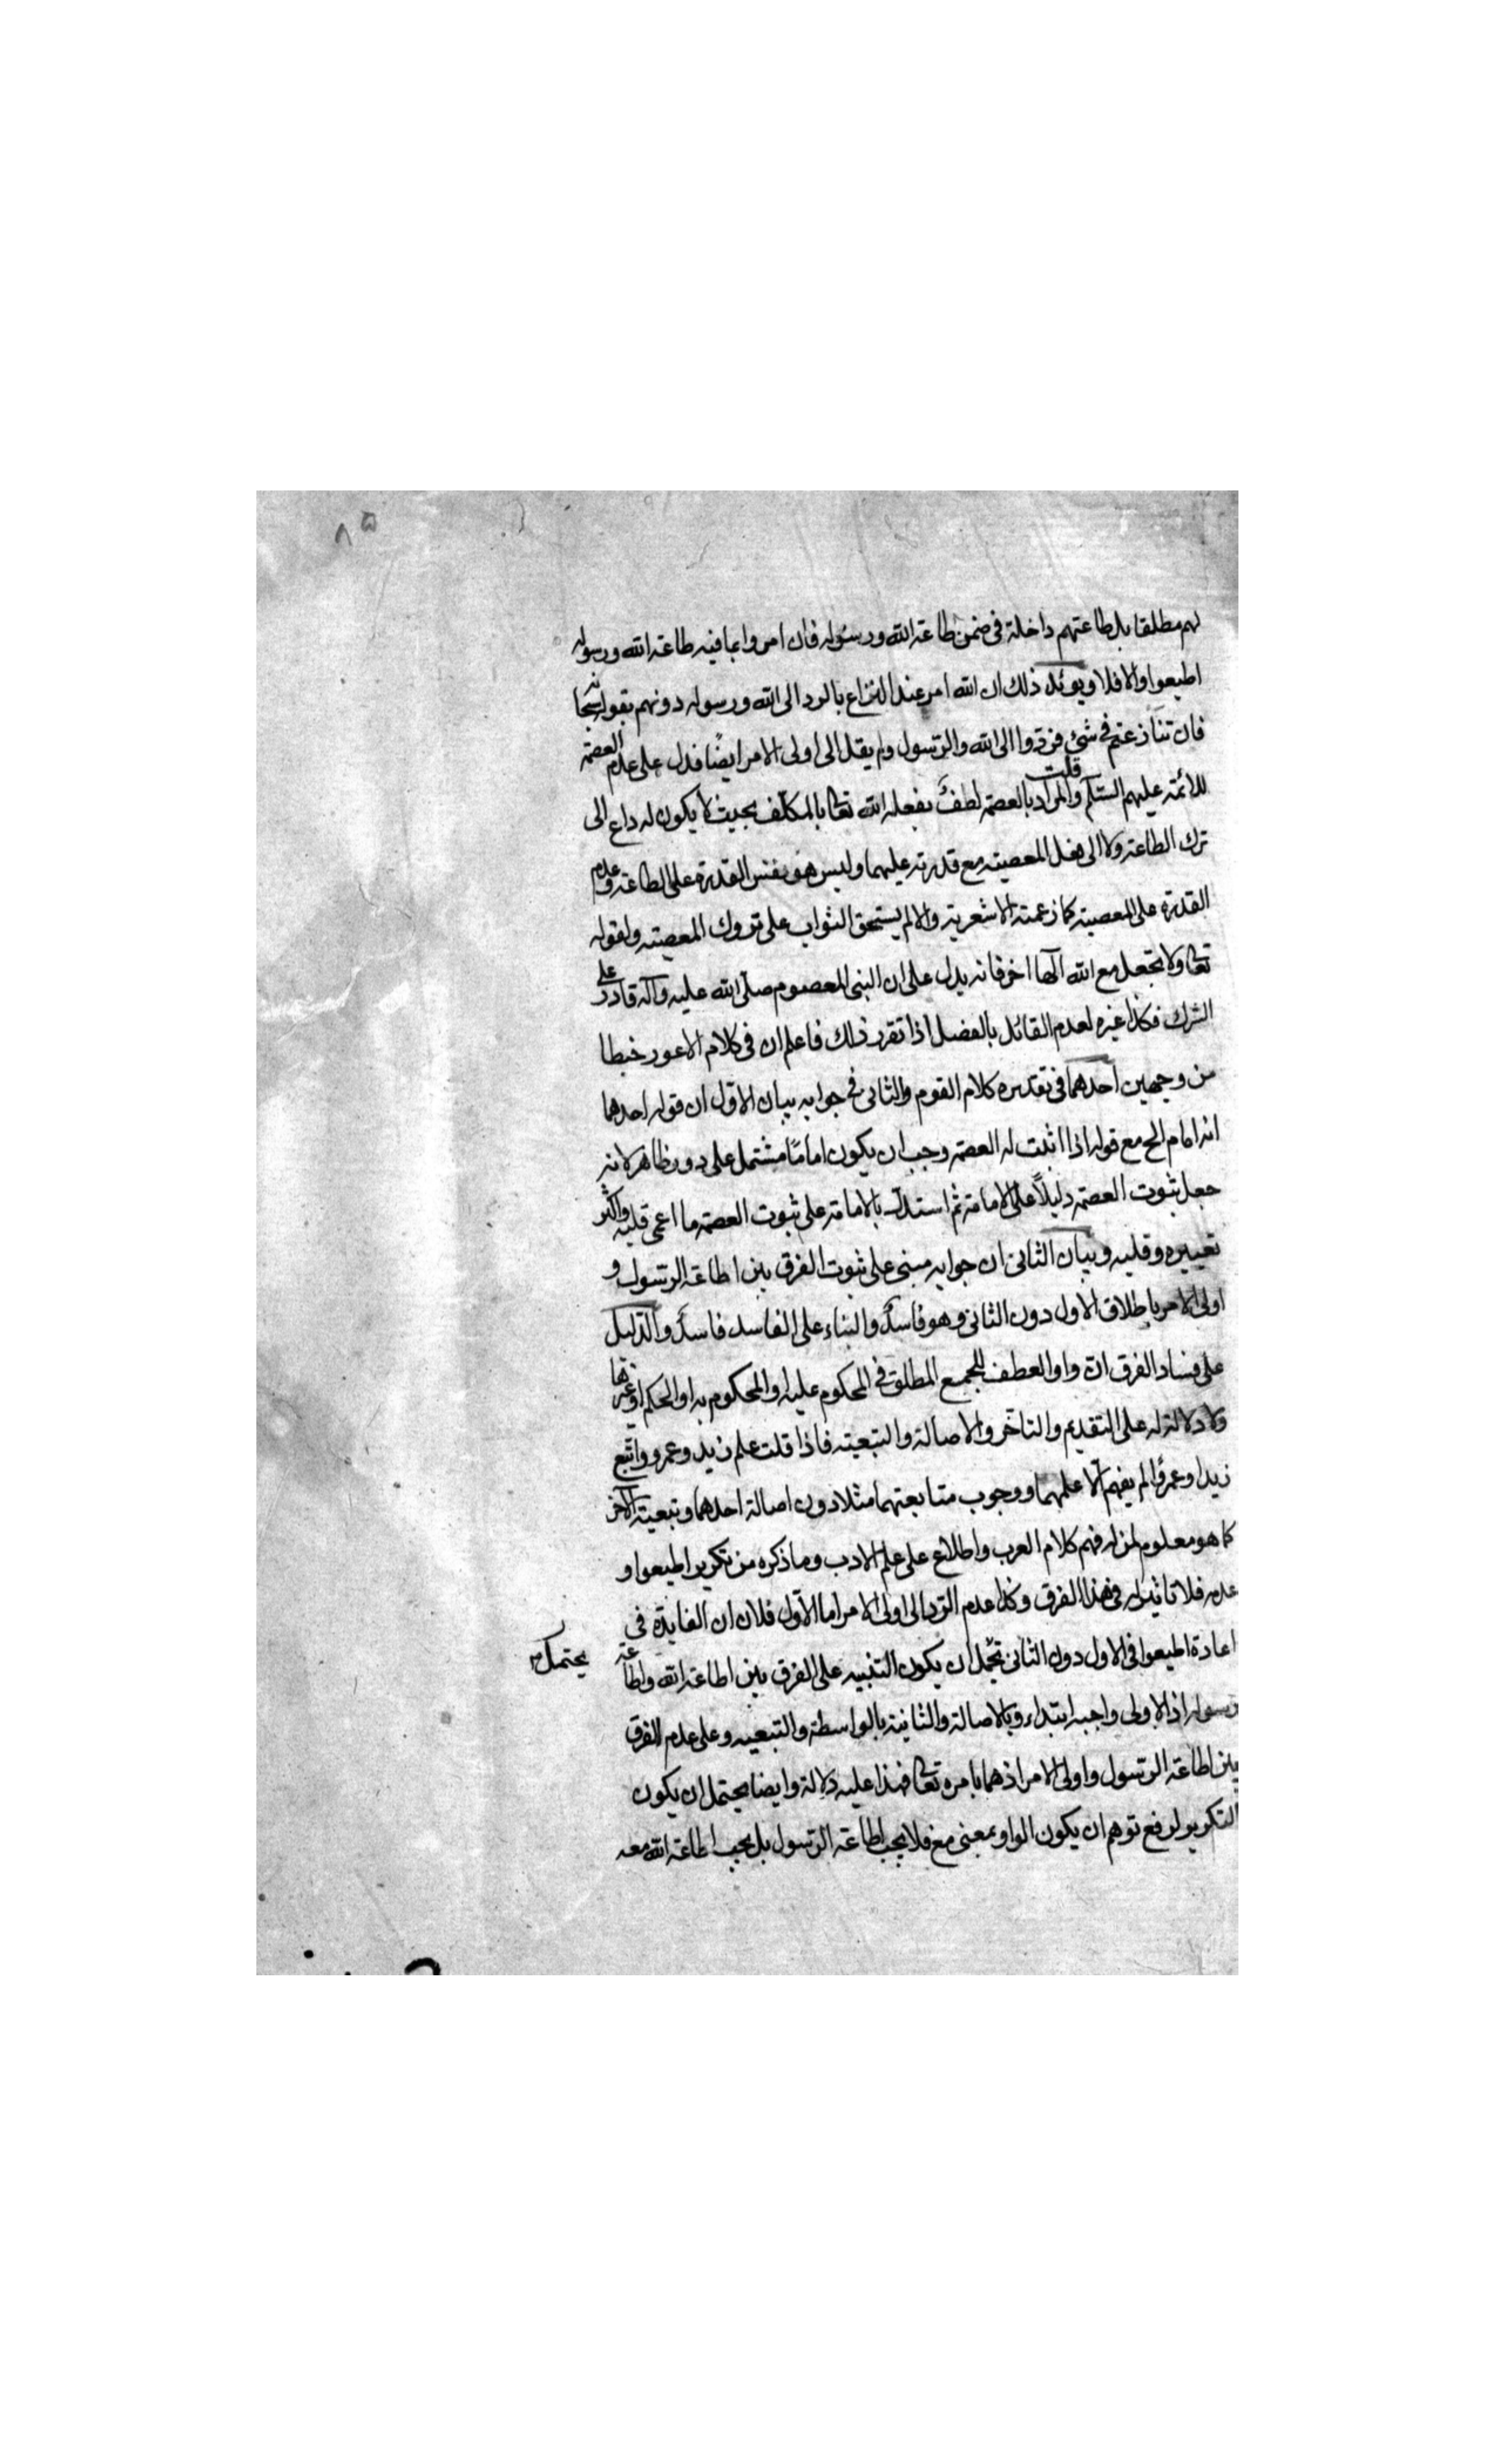 ٨٥
لهم مطلقا بل طاعتهم داخلة فى ضمن طاعة الله ورسوله فان امروا بما فيه طاعة الله ورسوله
اطيعوا والا فلا ويوئد ذلك ان الله امر عند النزاع بالرد الى الله ورسوله دونهم بقوله سبحانه
فان تنازعتم فى شئ فردّوا الى الله والرّسول ولم يقل الى اولى الامر ايضًا فدل على عدم العصمة
للائمة عليهم السّلم قلت والمراد بالعصمة لطفٌ يفعله الله تعالى بالمكلّف بحيث لا يكون له داع الى
ترك الطاعة ولا الى فعل المعصية مع قدرته عليهما وليس هو نفس القدرة على الطاعة وعدم
القدرة على المعصية كما زعمته الاشعرية والا لم يستحق الثواب على تروك المعصية ولقوله
تعالى ولا تجعل مع الله الٰها اخر فانه يدل على ان النبى المعصوم صلّى الله عليه وآله قادر على
الشرك فكذا غيره لعدم القائل بالفصل اذا تقرر ذلك فاعلم ان فى كلام الاعور خبطا
من وجهين احدهما فى تقديره كلام القوم والثانى فى جوابه بيان الاوّل ان قوله احدهما
انه امام الخ مع قوله اذا اثبت له العصمة وجب ان يكون امامًا مشتمل على دور ظاهر لانه
جعل ثبوت العصمة دليلاً على الامامة ثم استدلّ بالامامة على ثبوت العصمة ما اعمى قلبه واكثر
تعييره وقلبه وبيان الثانى ان جوابه مبنى على ثبوت الفرق بين اطاعة الرّسول و
اولى الامر باطلاق الاول دون الثانى وهو فاسدٌ والبناء على الفاسد فاسدٌ والدّليل
على فساد الفرق انّ واو العطف للجمع المطلق فى المحكوم عليه او المحكوم به او الحكم او غيرها
ولا دلالة له على التقديم والتاخّر والاصالة والتبعية فاذا قلت علم زيد وعمرو واتّبع
زيدا وعمرًوا لم يفهم الّا علمهما ووجوب متابعتهما مثلا دون اصالة احدهما وتبعية الآخر
كما هو معلوم لمن له فهم كلام العرب واطلاع على علم الادب وما ذكره من تكرير اطيعوا و
عدمه فلا تاثير له فى هذا الفرق وكذا عدم الرّد الى اولى الامر اما الاوّل فلان ان الفايدة فى
اعادة اطيعوا فى الاول دون الثانى تحمل ان يكون التنبيه على الفرق بين اطاعة الله واطاعة
يحتمل
رسوله اذ الاولى واجبه ابتداء وبالاصالة والثانية بالواسطة والتبعيه وعلى عدم الفرق
بين اطاعة الرّسول واولى الامر اذ هما بامره تعالى فهذا عليه دلالة وايضا يحتمل ان يكون
التكرير لرفع توهم ان يكون الواو بمعنى مع فلا يجب اطاعة الرّسول بل يجب اطاعة الله معه